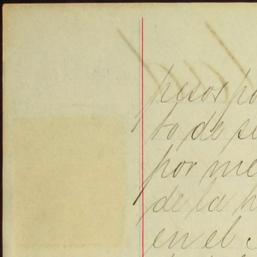 pesos po
to de se
por me
de la h
en el